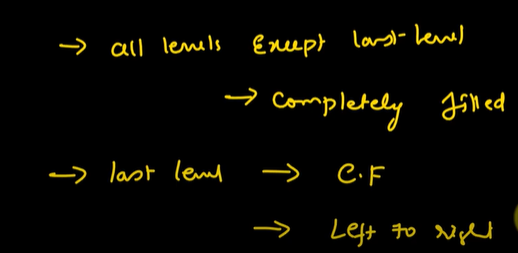 → all levels Except last-level
→ Completely filled
→ last level → C.F
→ Left to right